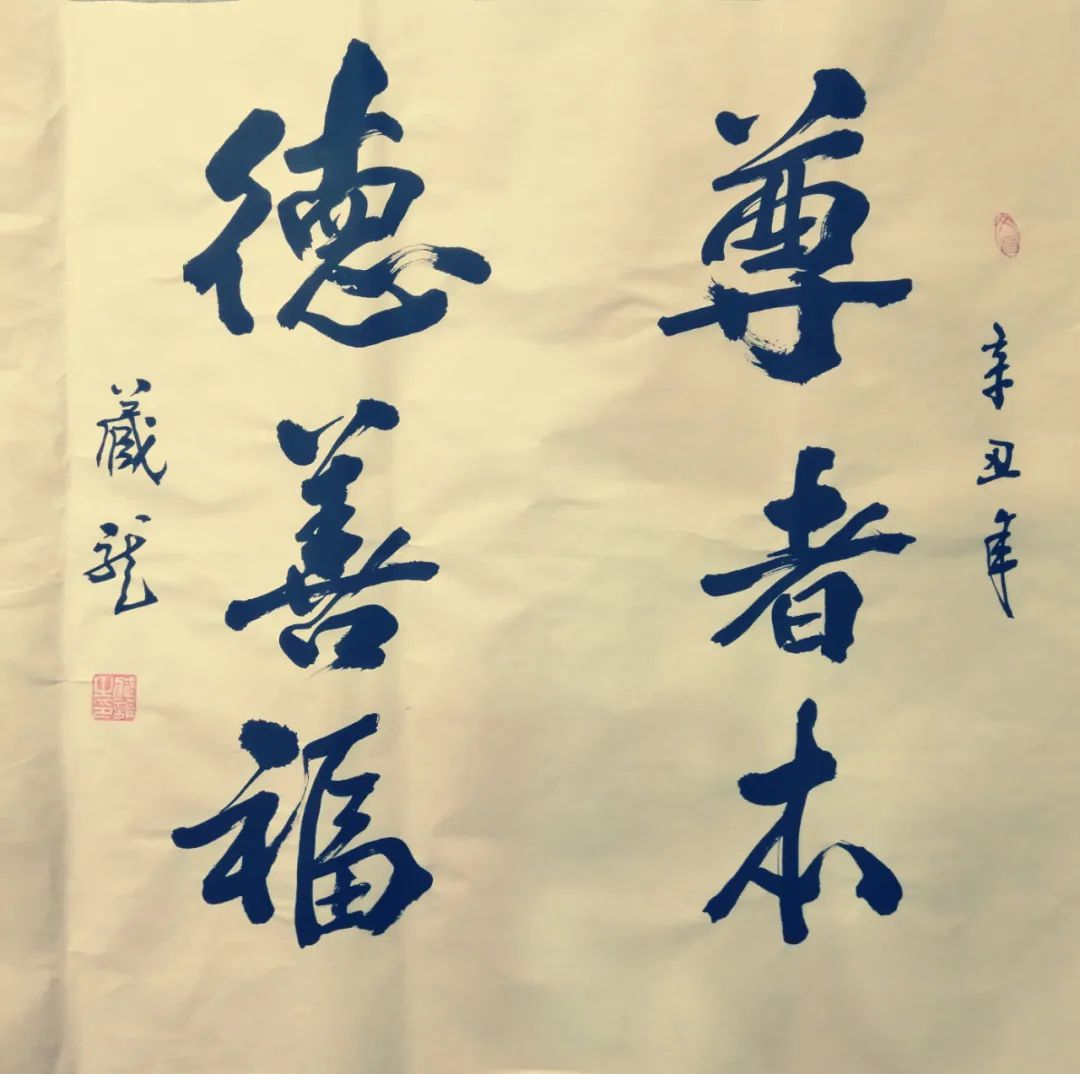 辛丑年
尊者本
德善福
藏龙